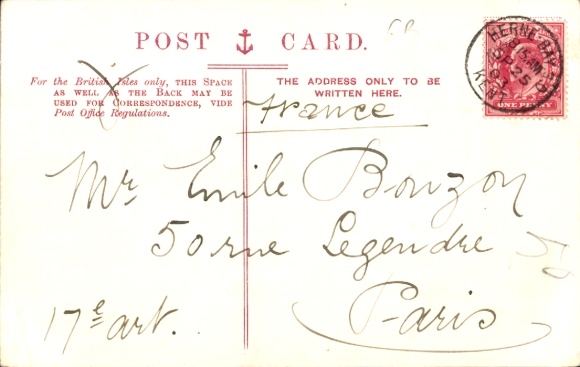 POST CARD.
For the British Isles only, THIS SPACE
AS WELL AS THE BACK MAY BE
USED FOR CORRESPONDENCE, VIDE
Post Office Regulations.
THE ADDRESS ONLY TO BE
WRITTEN HERE.
France
Mr Emile Bonzon
50 rue Legendre
Paris
17e art.
HERNE BAY
KENT
ONE PENNY